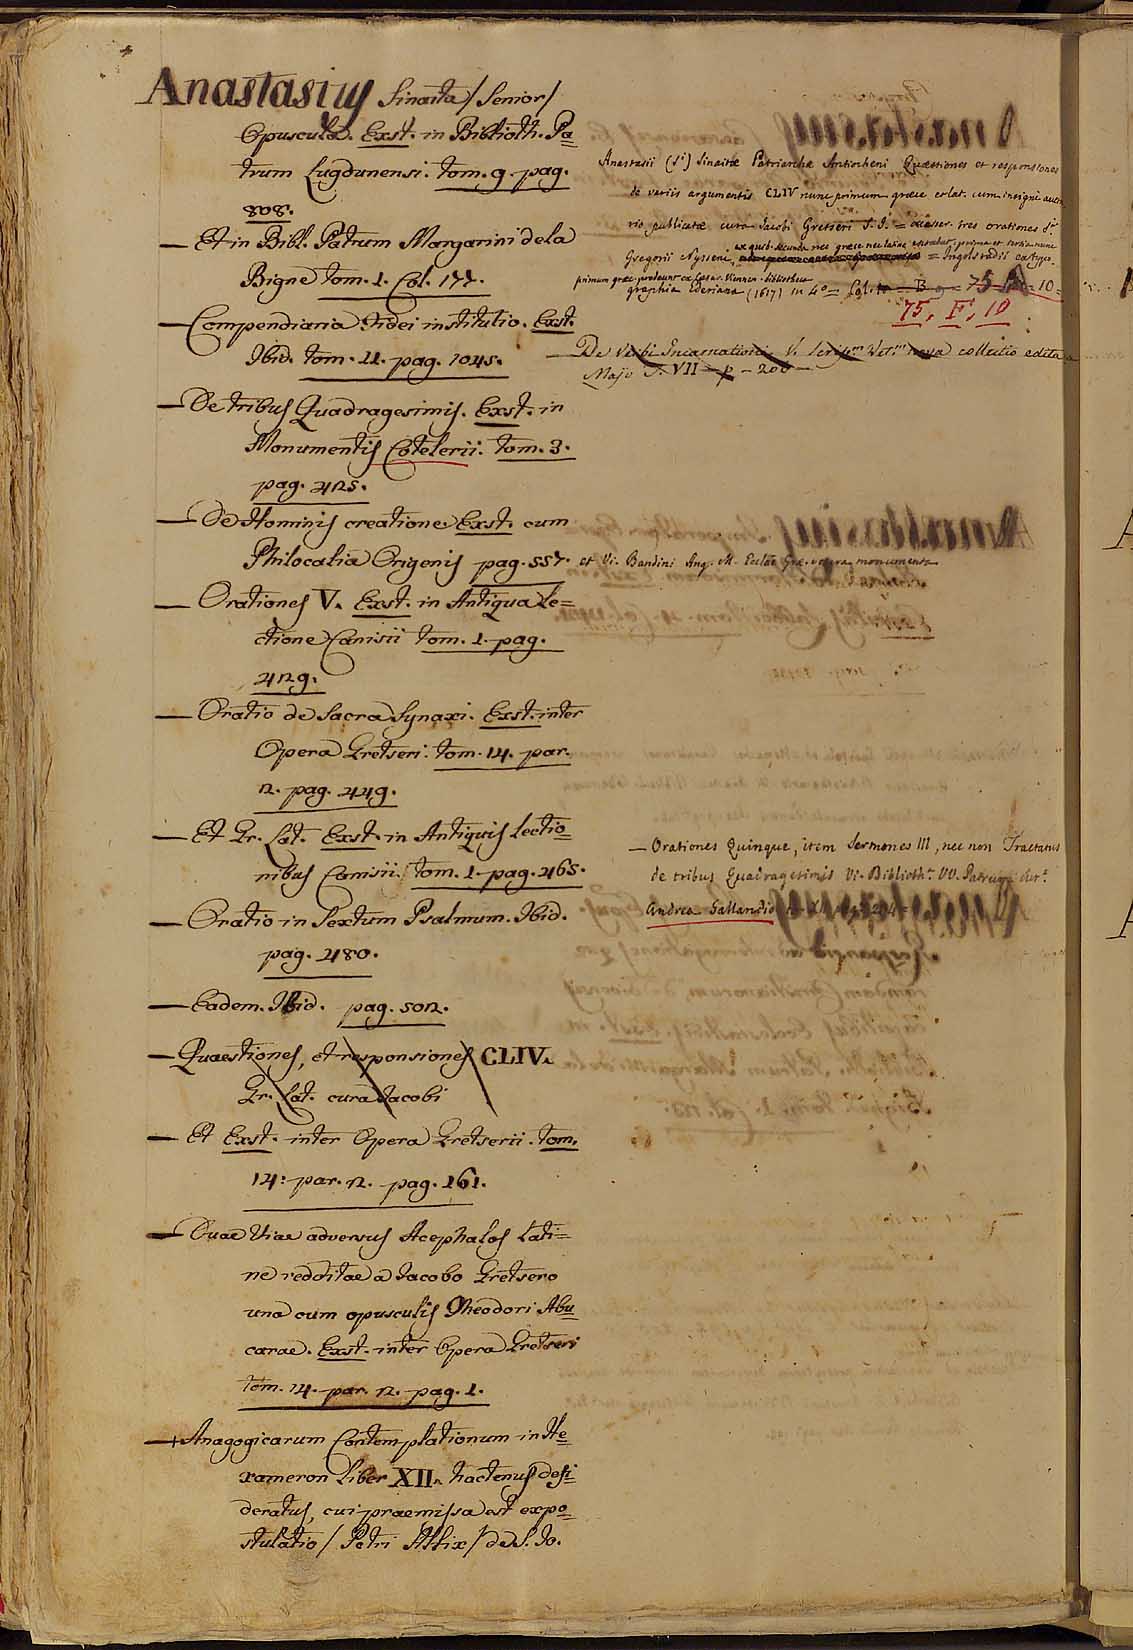 Anastasius Sinaita / Senior /
Opuscula. Exst. in Biblioth. Pa=
trum Lugdunensi: tom. 9. pag.
808.
— Et in Bibl. Patrum Margarini de la
Bigne tom. 1. Col. 177.
— Compendiaria Fidei institutio. Exst.
Ibid. tom. 11. pag. 1045.
— De tribus Quadragesimis. Exst. in
Monumentis Cotelerii. tom. 3.
pag. 425.
— De Hominis creatione. Exst. cum
Philocalia Origenis pag. 557.
— Orationes V. Exst. in Antiqua le=
ctione Canisii tom. 1. pag.
429.
— Oratio de Sacra Synaxi. Exst. inter
Opera Gretseri. tom. 14. par.
2. pag. 449.
— Et Gr. Lat. Exst. in Antiquis lectio=
nibus Canisii. tom. 1. pag. 465.
— Oratio in Sextum Psalmum. Ibid.
pag. 480.
— Eadem. Ibid. pag. 502.
— Quaestiones, et responsiones CLIV.
Gr. Lat. cura Jacobi
— Et Exst. inter Opera Gretserii. tom.
14: par. 2. pag. 161.
— Duae Viae adversus Acephalos Lati=
ne redditae a Jacobo Gretsero
una cum opusculis Theodori Abu=
carae. Exst. inter Opera Gretseri
tom. 14. par. 2. pag. 1.
— Anagogicarum Contemplationum in He=
xameron Liber XII. hactenus desi=
deratus, cui praemissa est expo=
stulatio / Petri Allix / de S. Jo.
Anastasii (Si) Sinaitæ Patriarchæ Antiocheni Quæstiones et responsiones
de variis argumentis CLIV nunc primum græce et lat. cum insigni aucta
rio publicatæ cura Jacobi Gretseri S. J. = accesser. tres orationes Si
Gregorii Nysseni, ex quib. secunda nec græce nec latine extabat, prima et tertia nunc
primum græc. prodeunt ex Cæsar. Viennen. bibliotheca = Ingolstadii ex typo
graphia Ederiana (1617) in 4o =
75, F, 10
— De Verbi Incarnatione V. Script.m Vet.m nova collectio edita a
Majo T. VII - p - 206 -
et Vi. Bandini Ang. M. Eccliæ Græ. vetera monumenta
— Orationes Quinque, item Sermones III, nec non Tractatus
de tribus Quadragesimis Vi. Biblioth.a VV. Patrum Aut.e
Andrea Gallandio